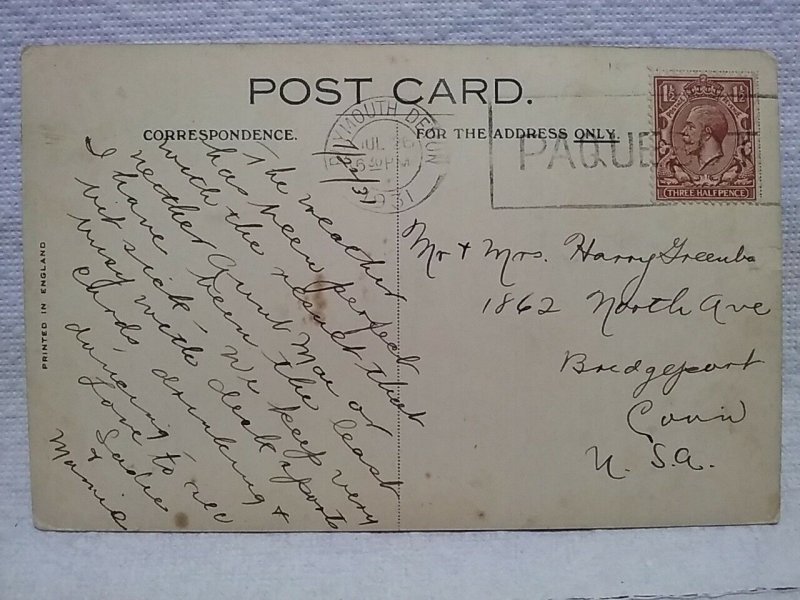 POST CARD.
CORRESPONDENCE.
FOR THE ADDRESS ONLY.
PLYMOUTH DEVON
JUL 26
630PM
1931
PAQUE
1½ 1½
POSTAGE REVENUE
THREE HALFPENCE
PRINTED IN ENGLAND
7/22/31
The weather
has been perfect
with the result that
neither Aunt Mae or
I have been the least
bit sick - We keep very
busy with deck sports
cards drinking +
dancing
Love to all
Sadie
+
Mamie
Mr + Mrs. Harry Greenba
1862 North Ave
Bridgeport
Conn
U.S.A.